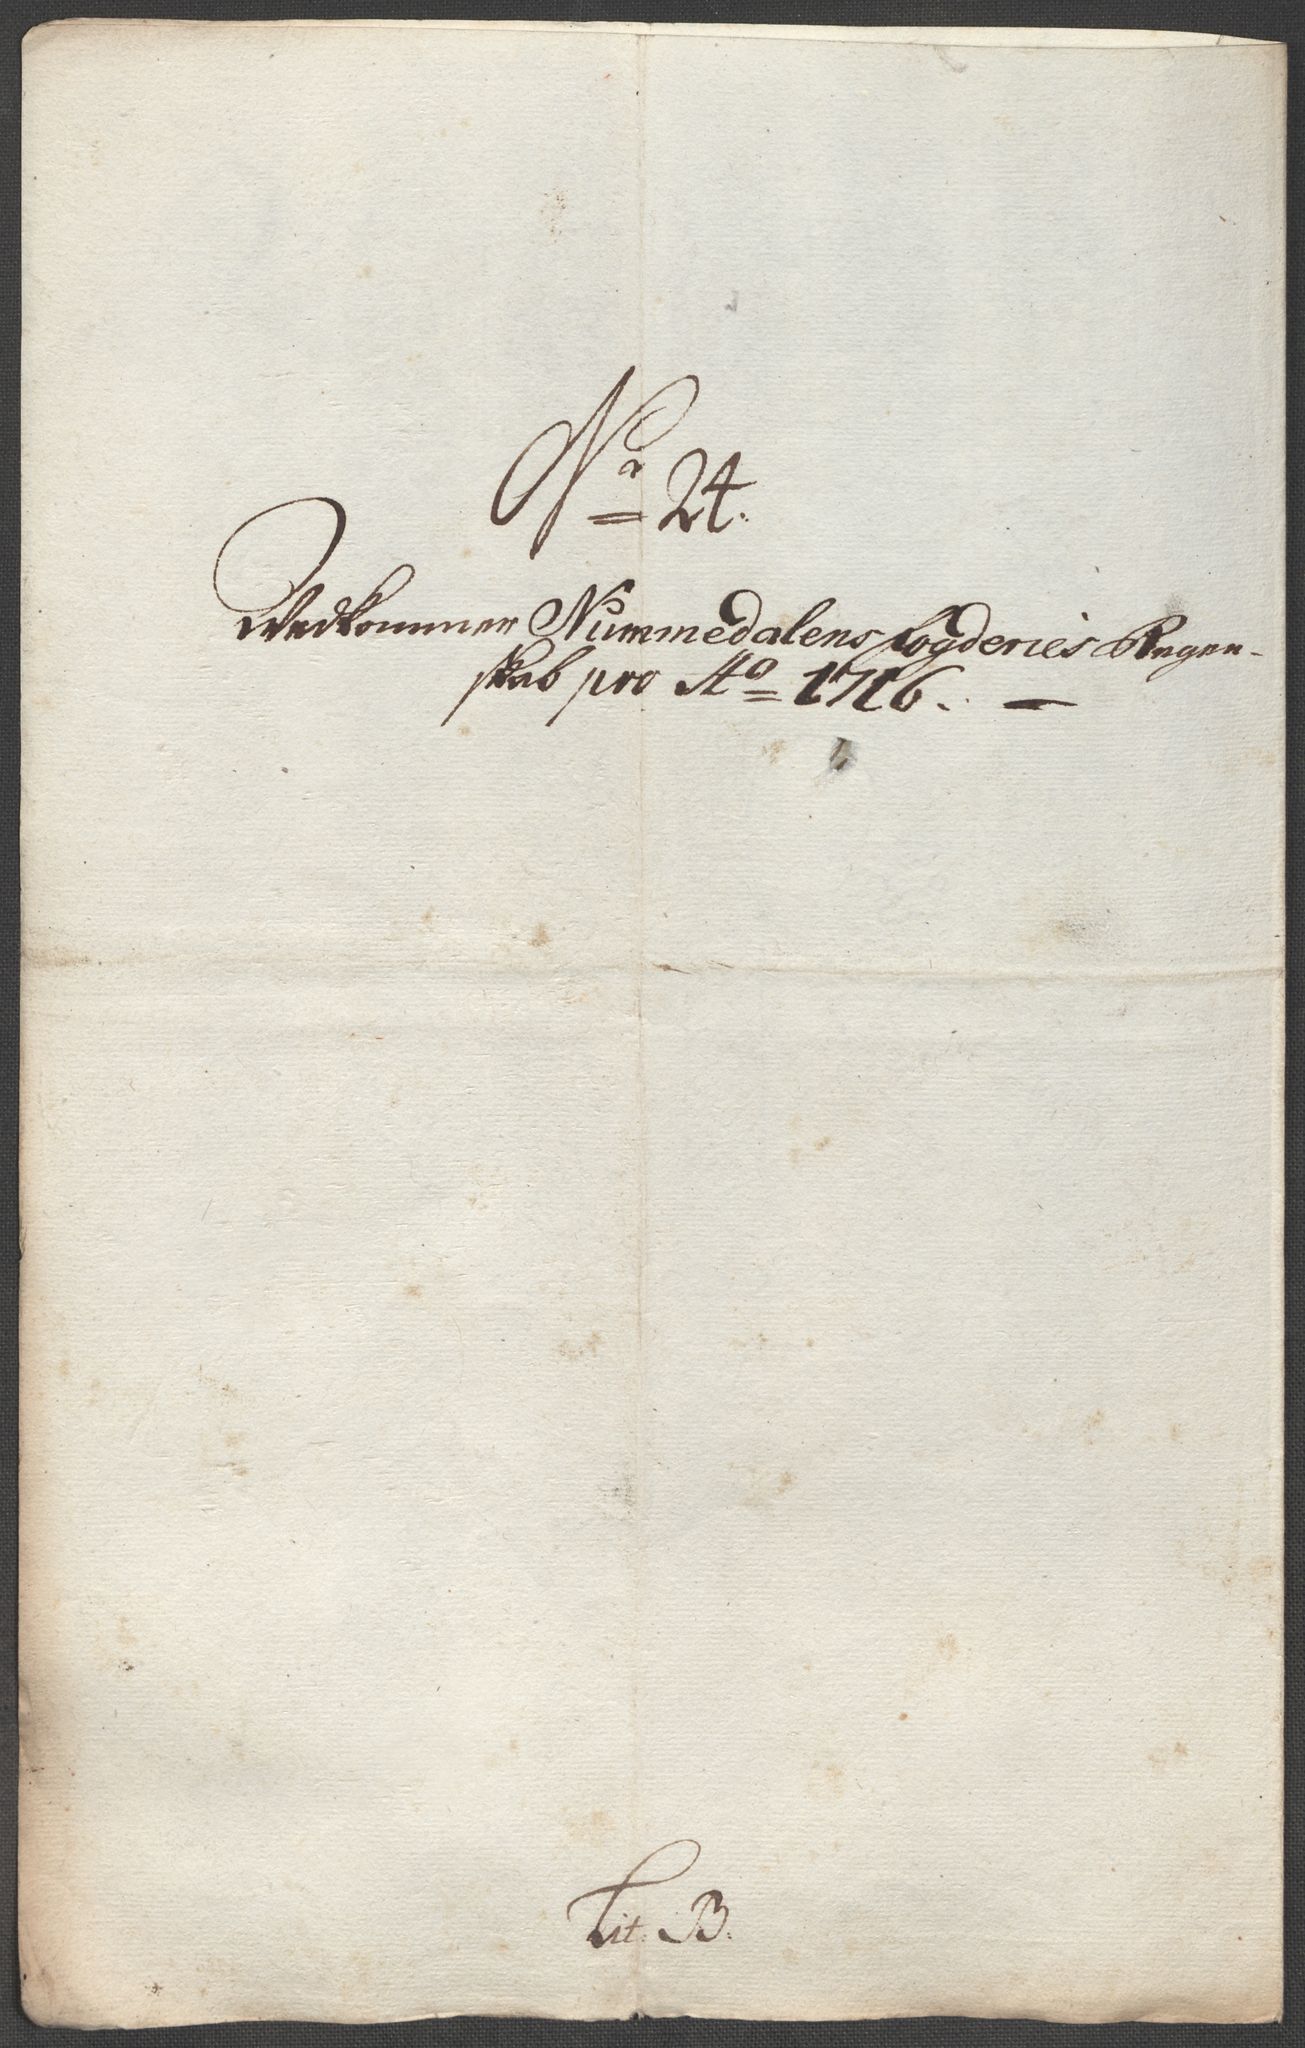 No 24.
Vedkommer Nummedalens fogderies Regen-
skab pro Ao 1716. —
Lit. B.